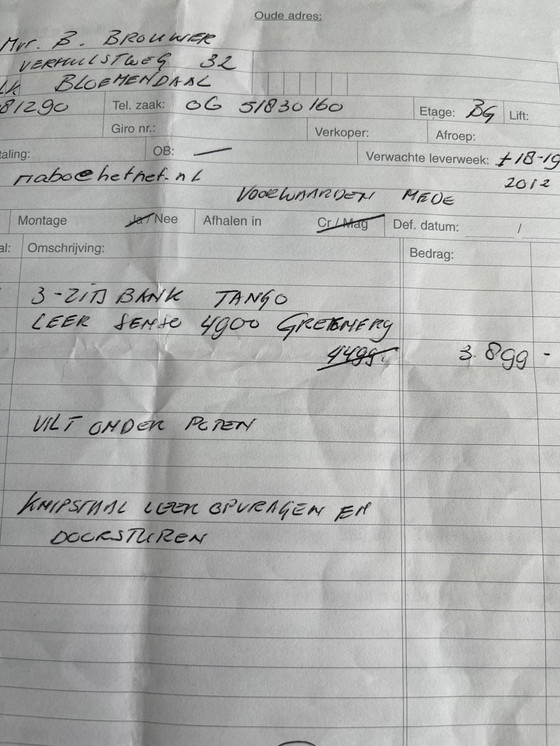 Oude adres:
Mvr. B. BROUWER
VERHULSTWEG 32
LK BLOEMENDAAL
81290 Tel. zaak: 06 51830160 Etage: BG Lift:
Giro nr.: Verkoper: Afroep:
taling: OB: — Verwachte leverweek: ±18-19
mabo@hetnet.nl 2012
VOORWAARDEN MEDE
Montage Ja / Nee Afhalen in Cr / Mag Def. datum: /
al: Omschrijving: Bedrag:
3-ZITS BANK TANGO
LEER SENSO 4900
4499.- 3.899 -
VILT ONDER POTEN
KNIPSTAAL LEER OPVRAGEN EN
DOORSTUREN